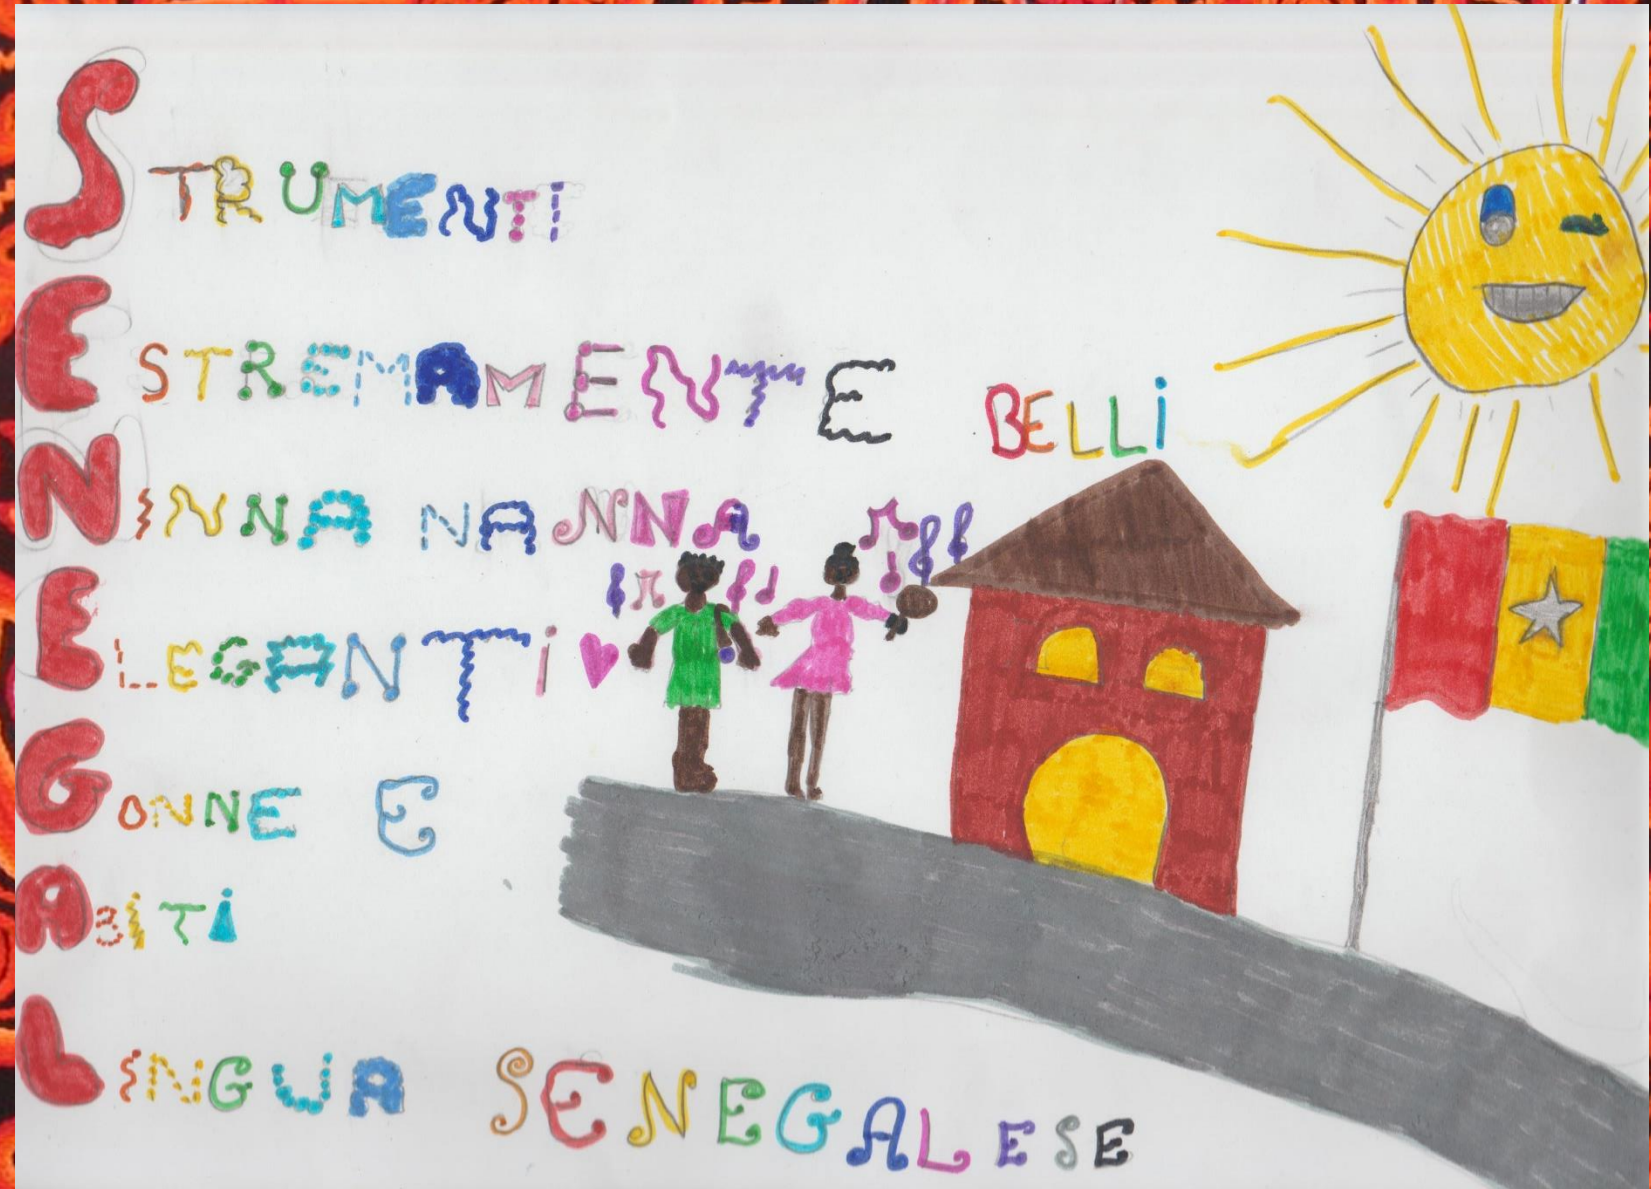 STRUMENTI
ESTREMAMENTE BELLI
NINNA NANNA
ELEGANTI
GONNE E
ABITI
LINGUA SENEGALESE